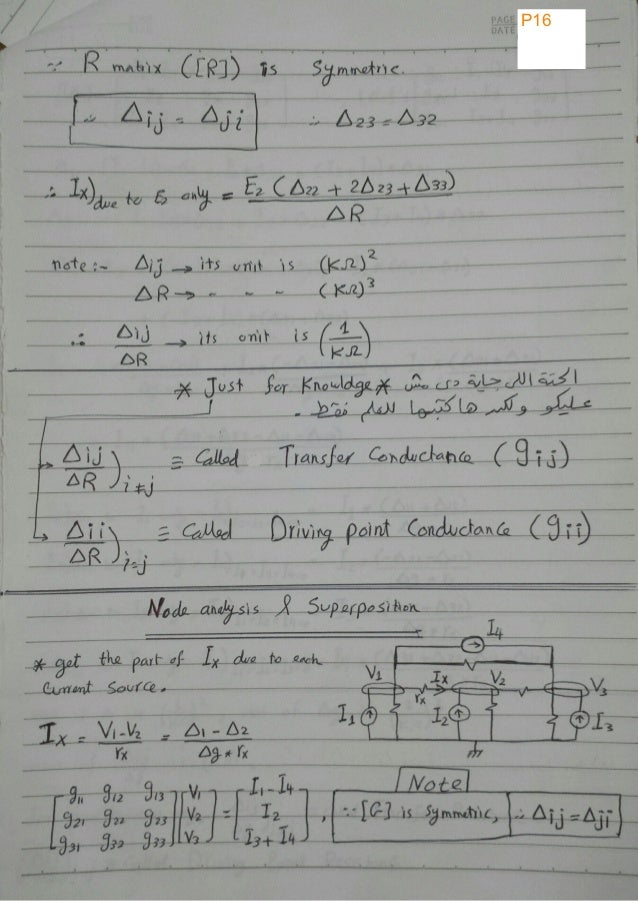 PAGE
DATE
P16
∵ R matrix ([R]) is Symmetric.
∴ Δij = Δji ∴ Δ23 = Δ32
∴ Ix)due to E2 only = E2 (Δ22 + 2Δ23 + Δ33) / ΔR
note :- Δij → its unit is (KΩ)²
ΔR → - - - (KΩ)³
∴ Δij / ΔR → its unit is (1 / KΩ)
* Just for Knowldge * الحتة اللي جاية دى مش
عليكو ولكن هاكتبها للعلم فقط .
Δij / ΔR)i≠j ≡ Called Transfer Conductance (gij)
Δii / ΔR)i=j ≡ Called Driving point Conductance (gii)
Node analysis & Superposition
* get the part of Ix due to each
Current Source.
I4
V1 Ix V2 V3
rx
I1 I2 I3
Ix = V1-V2 / rx = Δ1 - Δ2 / Δg * rx
Note
[g11 g12 g13] [V1] = [I1 - I4]
[g21 g22 g23] [V2] = [I2] , ∵ [G] is Symmetric, ∴ Δij = Δji
[g31 g32 g33] [V3] = [I3 + I4]